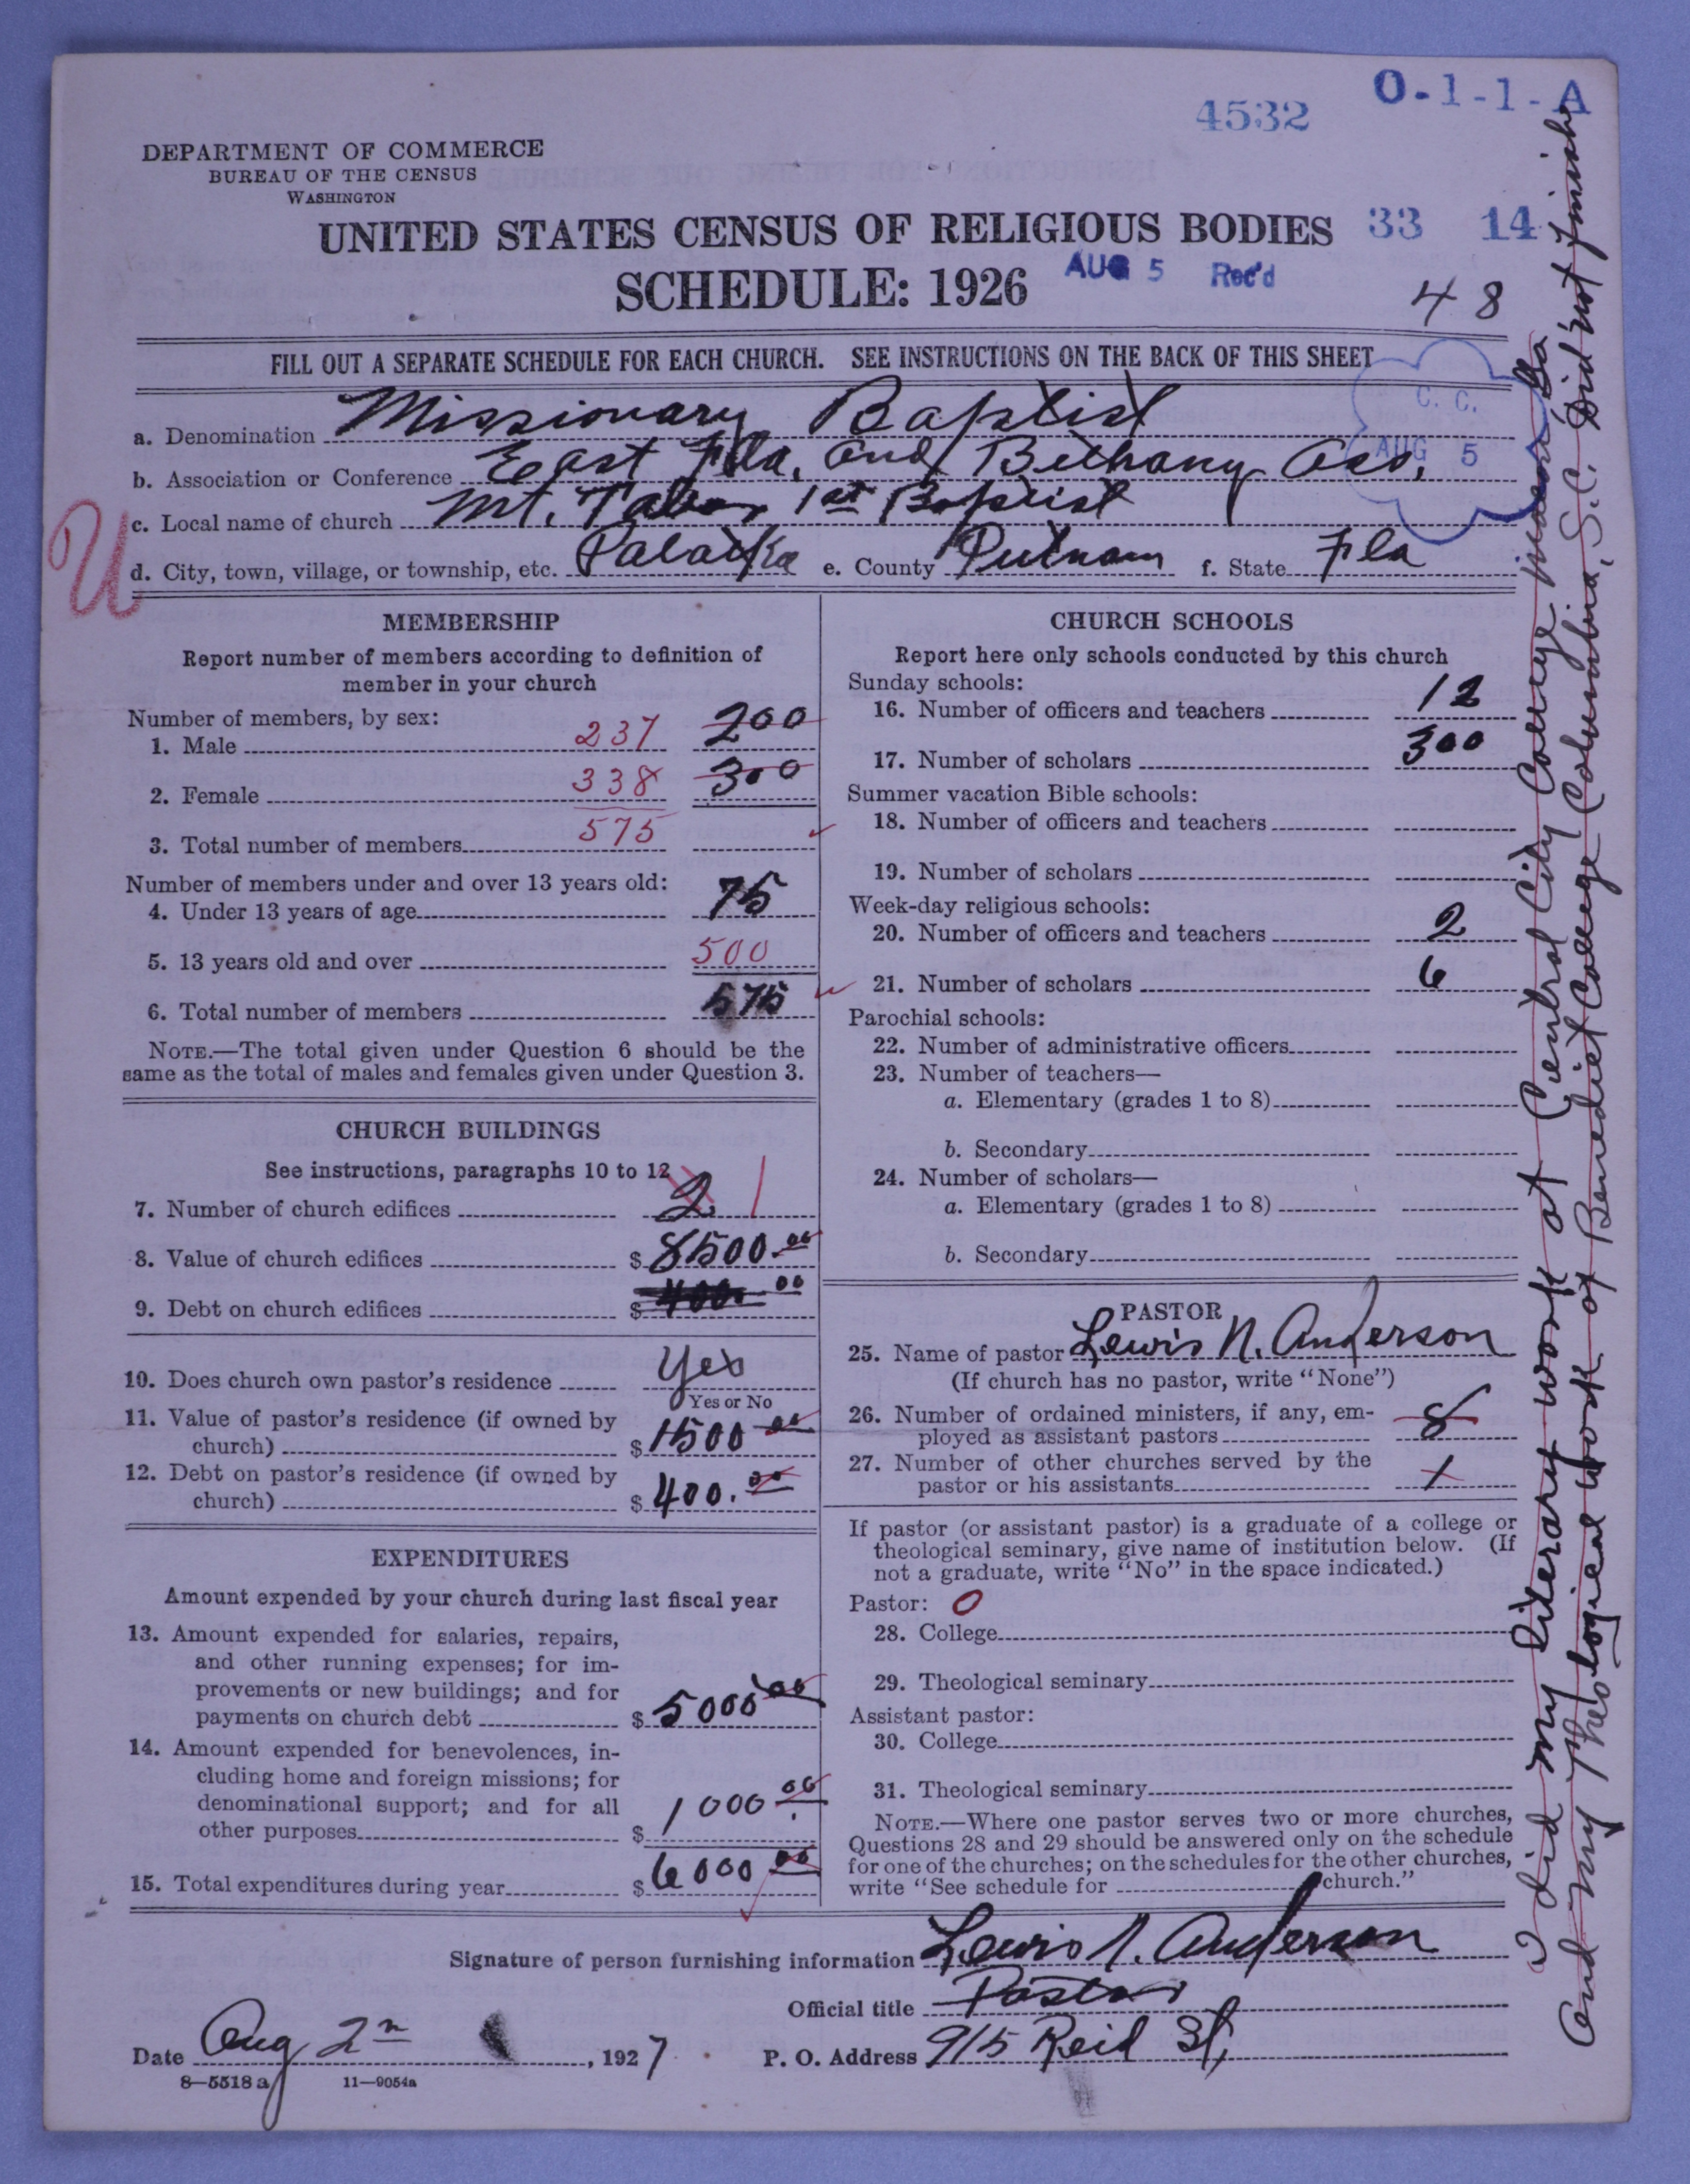 4532 O-1-1-A
DEPARTMENT OF COMMERCE
BUREAU OF THE CENSUS
WASHINGTON
UNITED STATES CENSUS OF RELIGIOUS BODIES 33 14
SCHEDULE: 1926 AUG 5 Rec'd
48
FILL OUT A SEPARATE SCHEDULE FOR EACH CHURCH. SEE INSTRUCTIONS ON THE BACK OF THIS SHEET
C. C.
AUG 5
a. Denomination Missionary Baptist
b. Association or Conference East Fla. and Bethany Asso.
c. Local name of church Mt. Tabor 1st Baptist
U
d. City, town, village, or township, etc. Palatka e. County Putnam f. State Fla
MEMBERSHIP
Report number of members according to definition of
member in your church
Number of members, by sex:
1. Male 237 200
2. Female 338 300
3. Total number of members 575
Number of members under and over 13 years old:
4. Under 13 years of age 75
5. 13 years old and over 500
6. Total number of members 575
NOTE.—The total given under Question 6 should be the
same as the total of males and females given under Question 3.
CHURCH BUILDINGS
See instructions, paragraphs 10 to 12
7. Number of church edifices 2 1
8. Value of church edifices $ 8500.00
9. Debt on church edifices $ 400.00
10. Does church own pastor's residence Yes
Yes or No
11. Value of pastor's residence (if owned by
church) $ 1500 00
12. Debt on pastor's residence (if owned by
church) $ 400.00
EXPENDITURES
Amount expended by your church during last fiscal year
13. Amount expended for salaries, repairs,
and other running expenses; for im-
provements or new buildings; and for
payments on church debt $ 5000 00
14. Amount expended for benevolences, in-
cluding home and foreign missions; for
denominational support; and for all
other purposes $ 1000 00
15. Total expenditures during year $ 6000 00
CHURCH SCHOOLS
Report here only schools conducted by this church
Sunday schools:
16. Number of officers and teachers 12
17. Number of scholars 300
Summer vacation Bible schools:
18. Number of officers and teachers
19. Number of scholars
Week-day religious schools:
20. Number of officers and teachers 2
21. Number of scholars 6
Parochial schools:
22. Number of administrative officers
23. Number of teachers—
a. Elementary (grades 1 to 8)
b. Secondary
24. Number of scholars—
a. Elementary (grades 1 to 8)
b. Secondary
PASTOR
25. Name of pastor Lewis N. Anderson
(If church has no pastor, write "None")
26. Number of ordained ministers, if any, em-
ployed as assistant pastors 8
27. Number of other churches served by the
pastor or his assistants 1
If pastor (or assistant pastor) is a graduate of a college or
theological seminary, give name of institution below. (If
not a graduate, write "No" in the space indicated.)
Pastor: 0
28. College
29. Theological seminary
Assistant pastor:
30. College
31. Theological seminary
NOTE.—Where one pastor serves two or more churches,
Questions 28 and 29 should be answered only on the schedule
for one of the churches; on the schedules for the other churches,
write "See schedule for church."
Signature of person furnishing information Lewis N. Anderson
Official title Pastor
Date Aug 2n, 1927 P. O. Address 915 Reid St,
8—5518 a 11—9054a
I did my literary work at Central City College Macon Ga
and my Theological work of Benedict College Columbia, S.C. Did not finish